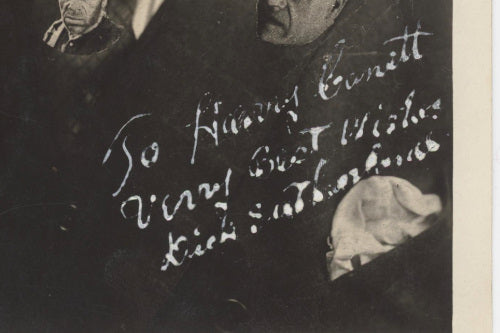 To Harry Garrett
Very Best Wishes
Dick Sutherland